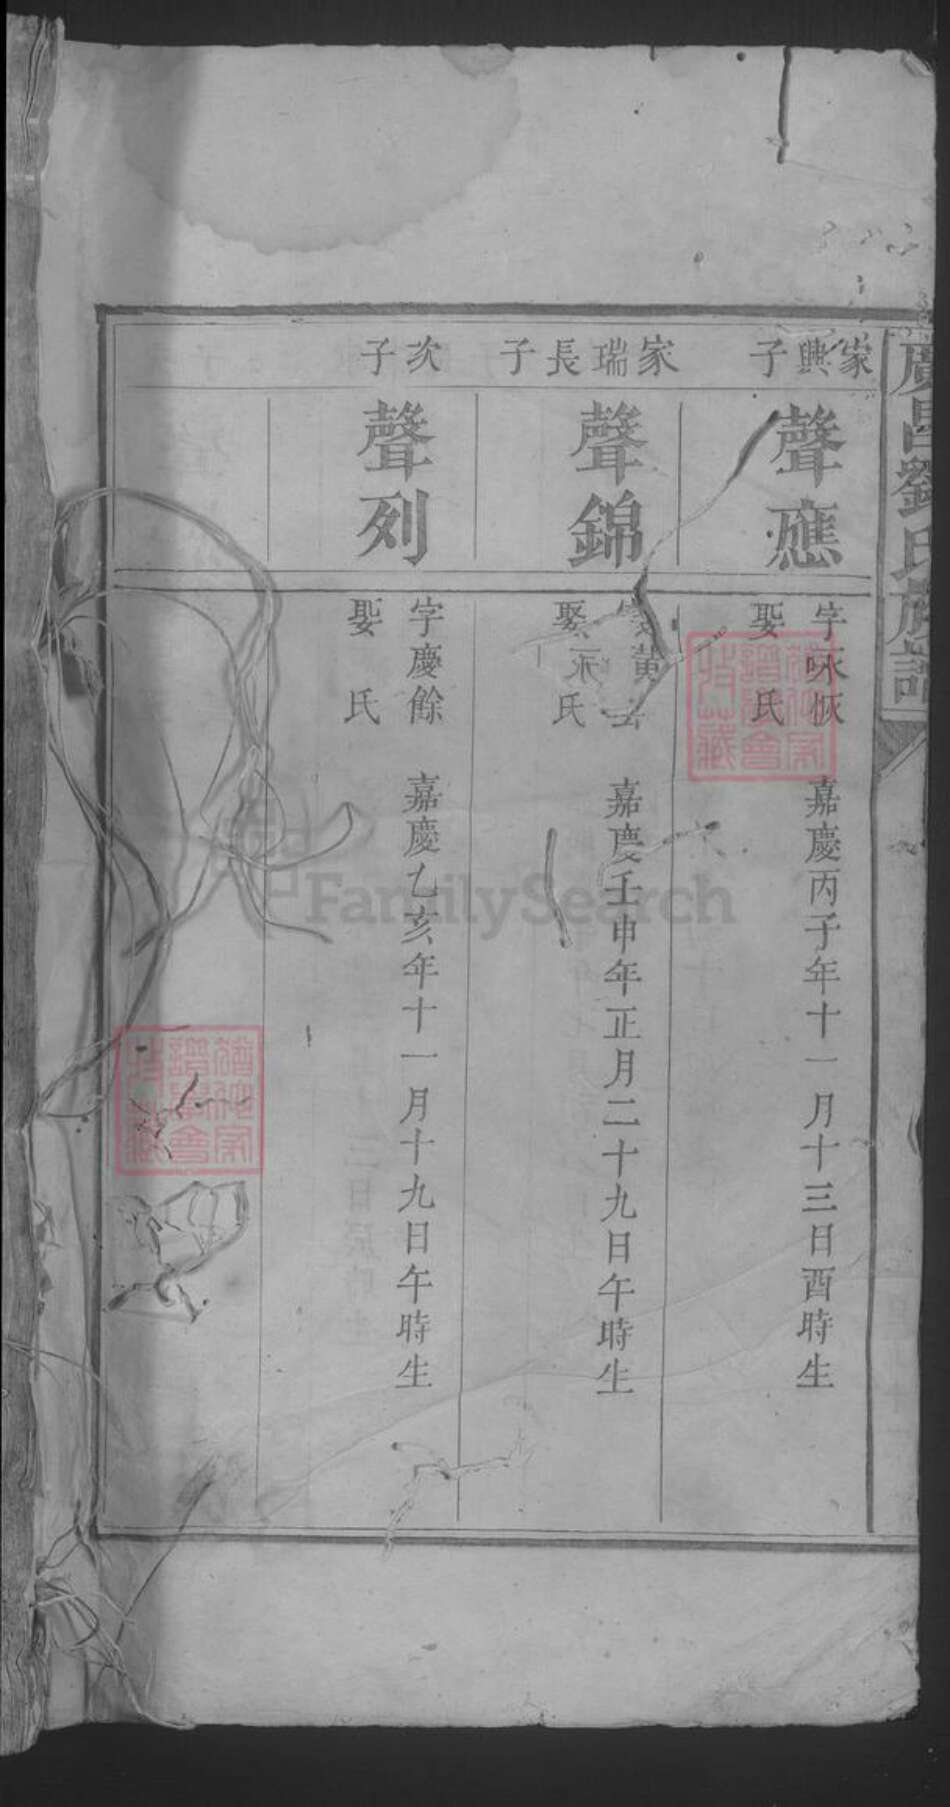 廣昌劉氏族譜
家興子
聲應
字咏恢 嘉慶丙子年十一月十三日酉時生
娶 氏
家瑞長子
聲錦
嘉慶壬申年正月二十九日午時生
氏
次子
聲列
字慶餘 嘉慶乙亥年十一月十九日午時生
娶 氏
FamilySearch